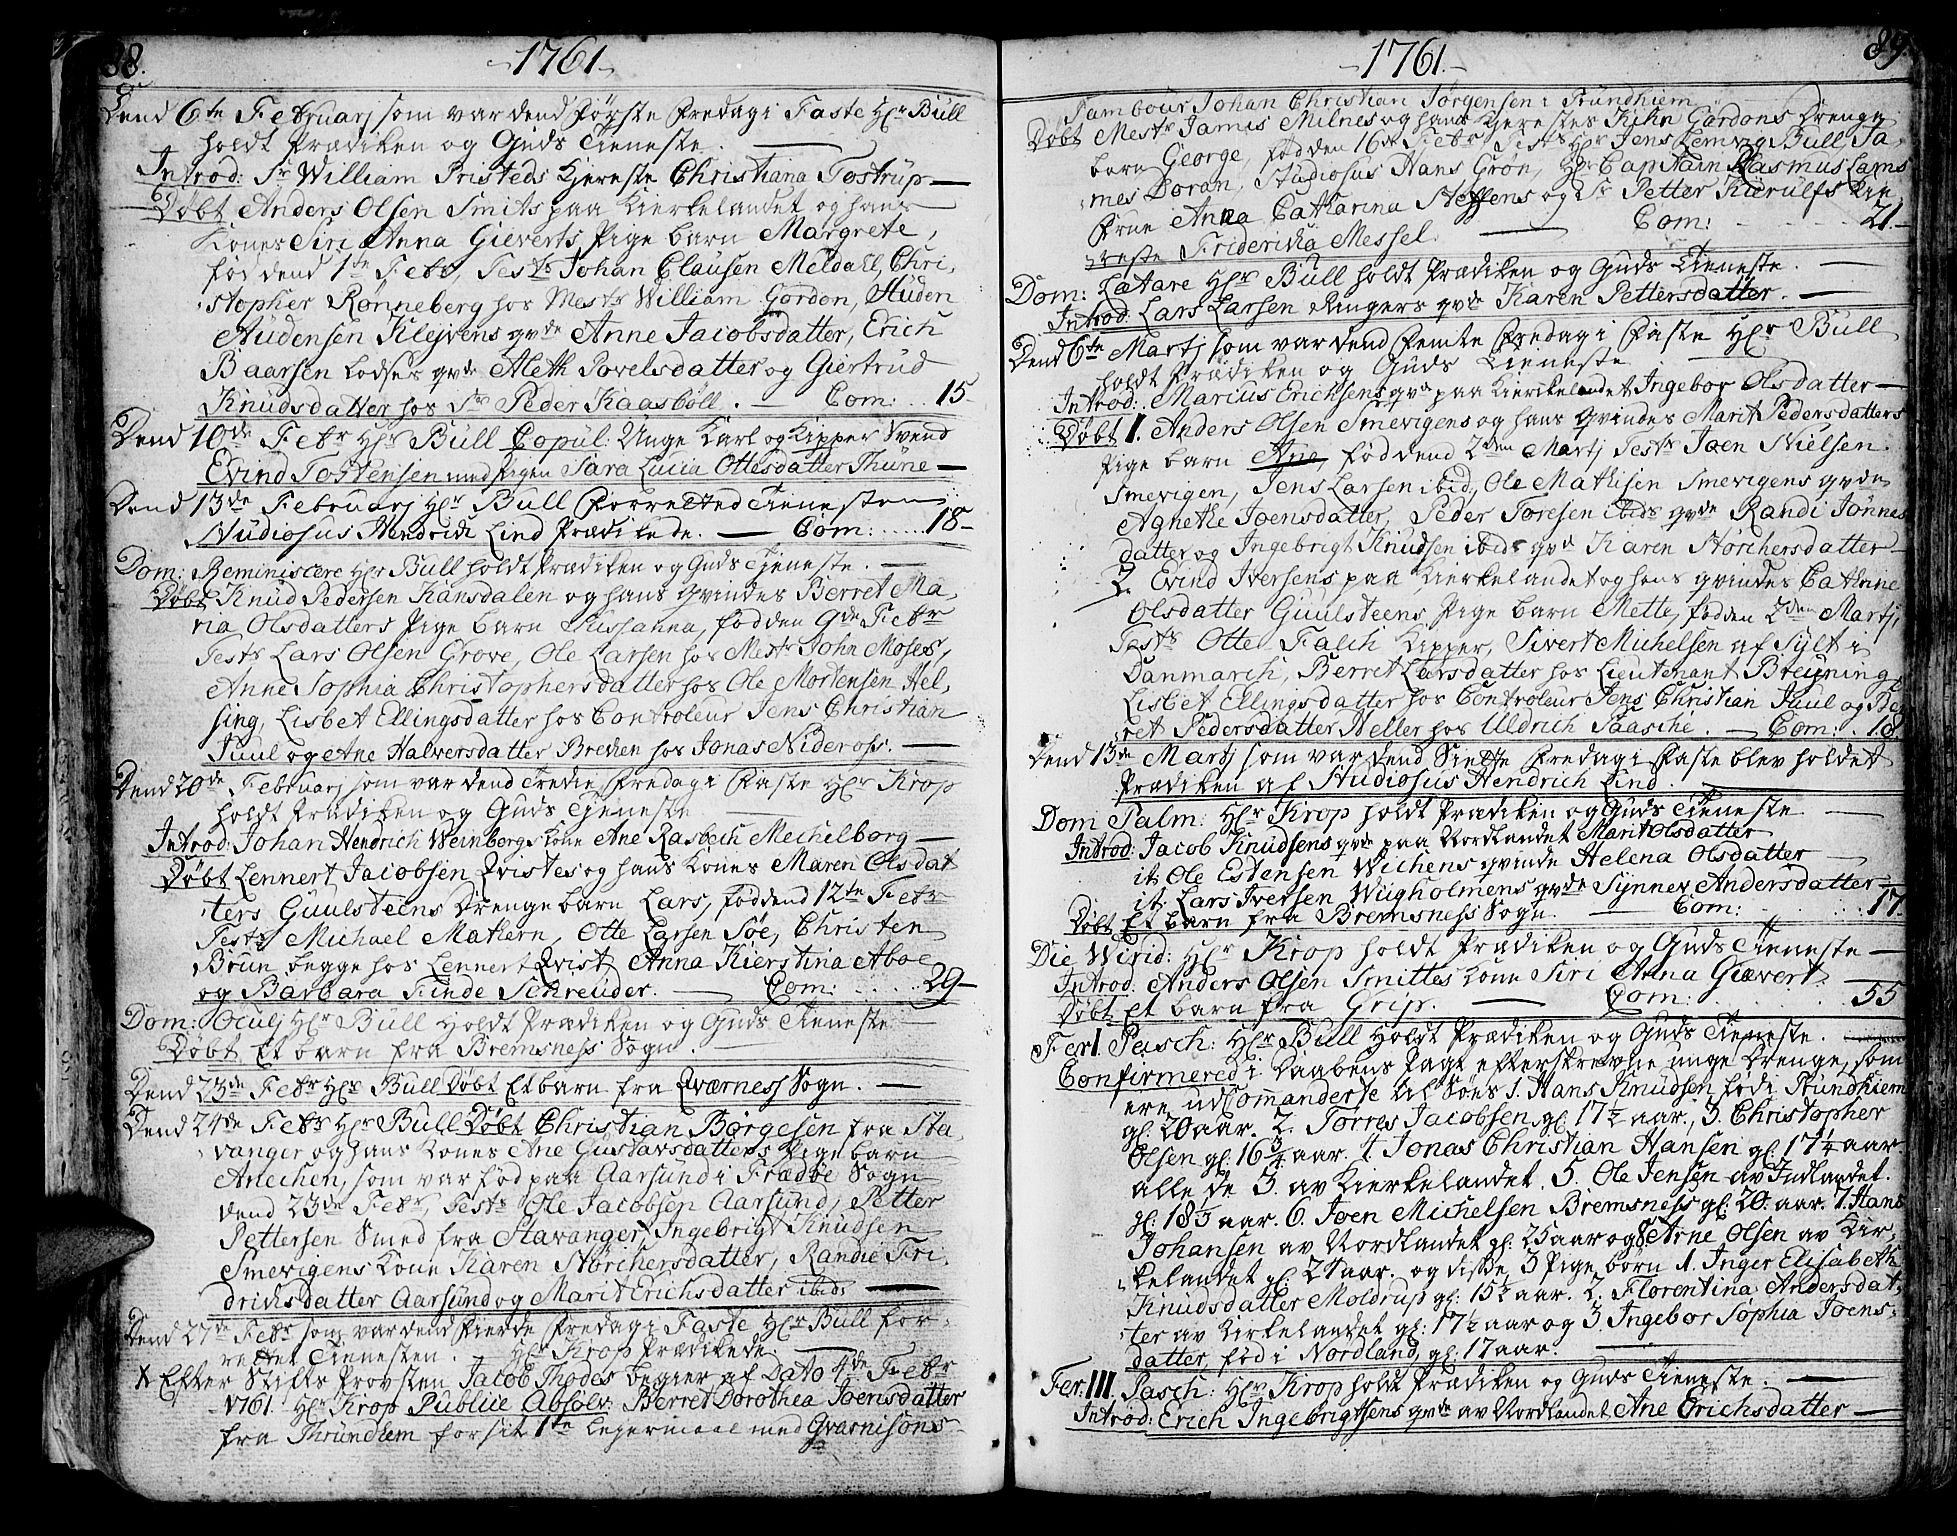 88.
-1761-
Dend 6te Februarj som var dend første Fredag i Faste Hr. Bull
holdt Prædiken og Guds Tieneste.
Introd: Sr William Pristeds Kjereste Christiana Tostrup
Døbt Anders Olsen Smits paa Kierkelandet og hans
Kones Siri Anna Gieverts Pige barn Margrete,
fød dend 1te Febr, Test: Johan Clausen Meldahl, Chri,
stopher Rønneberg hos Mestr William Gordon, Huden
Audensen Klejvens gvde Anne Jacobsdatter, Erich
Baarsen Lodses gvde Aleth Povelsdatter og Giertrud
Knudsdatter hos Sr Peder Kaasbøll. Com: .. 15-
Dend 10de Febr Hr Bull Copul: Unge Karl og Kipper Svend
Evind Tostensen med Pigen Sara Lucia Ottesdatter Thune
Dend 13de Februarj Hr Bull Forretted Tienesten
Studiosus Hendrich Lind Prædikede. Com: .... 18-
Dom: Reminiscere Hr Bull holdt Prædiken og Guds Tieneste.
Døbt Knud Pedersen Kansdalen og hans Qvindes Berret Ma,
ria Olsdatters Pige barn Sussanna, fød den 9de Febr
Tests Lars Olsen Grove, Ole Larsen hos Mestr John Moses,
Anne Sophia Christophersdatter hos Ole Mortensen Hel,
sing, Lisbet Ellingsdatter hos Controleur Jens Christian
Juul og Ane Halversdatter Brecken hos Jonas Nideross.
Dend 20de Februarj som var dend Tredie Fredag i Faste Hr Krop
holdt Prædiken og Guds Tieneste
Introd: Johan Hendrich Weinbergs Kone Ane Rasbech Mechelborg
Døbt Lennert Jacobsen Qvistes og hans Kones Maren Olsdat
ters Guulsteens Drenge barn Lars, fød dend 12te Febr
Tests Michael Mathern, Otte Larsen Søe, Christen
Brun begge hos Lennert Qvist, Anna Kierstina Aboe
og Barbara Finde Schreuder. Com: .... 29-
Dom: Oculj Hr Bull Holdt Prædiken og Guds Tieneste
Døbt Et barn fra Bremsness Sogn.
Dend 23de Febr Hr Bull Døbt Et barn fra Qværness Sogn.
Dend 24de Febr Hr Bull Døbt Christian Børgesen fra Sta,
vanger og hans Kones Ane Gustavsdatters Pige barn
Anechen, som var fød paa Aarsund i Frædøe Sogn
dend 23de Febr, Tests Ole Jacobsen Aarsund, Petter
Pettersen Smed fra Stavanger, Ingebrigt Knudsen
Smevigens Kone Karen Størchersdatter, Randie Fri,
drichsdatter Aarsund og Marit Erichsdatter ibid:
Dend 27de Febr som var dend Fierde Fredag i Faste Hr Bull for-
rettet Tienesten. Hr Krop Prædikede.
X Efter Stifts Provsten Jacob Thodes begier af Dato 4de Febr
1761 Hr Krop Publice Absolv: Berret Dorothea Joensdatter
fra Thrundhem for sit 1te Lejermaal med Gvarnisons-
89.
-1761.-
Tambour Johan Christian Jørgensen i Trundhiem
Døbt Mestr Jamis Milnes og hans Kjerestes Kihn Gordons Drenge
barn George, fød den 16de Febr Tests Hr Jens Lemvig Bull, Ja,
mes Doran, Studiosus Hans Grøn, Hr Capitain Rasmus Lams
Frue Anna Catharina Steffens og Sr Petter Kierulfs Kie
reste Friderica Messel. Com: 21-
Dom: Lætare Hr Bull holdt Prædiken og Guds Tieneste.
Introd: Lars Larsen Ringers gvde Karen Pettersdatter.
Dend 6te Martj som var dend Femte Fredag i Faste Hr Bull
holdt Prædiken og Guds Tieneste
Introd: Marius Erichsens gvde paa Kierkelandet Ingebor Olsdatter
Døbt 1. Anders Olsen Smevigens og hans Qvindes Marit Pedersdatters
Pige barn Ane, fød dend 2den Martj Tests Joen Nielsen
Smevigen, Jens Larsen ibid, Ole Mathisen Smevigens gvde
Agnethe Joensdatter, Peder Toresen ibids gvde Randi Jønnes
datter og Ingebrigt Knudsen ibids gvd Karen Størchersdatter
2. Evind Iversens paa Kierkelandet og hans qvindes Cathrine
Olsdatter Guulsteens Pige barn Mette, fød den 2den Martj,
Tests Otte Falch Kipper, Sivert Michelsen af Sylt i
Danmarch, Berret Larsdatter hos Lieutenant Breuning,
Lisbet Ellingsdatter hos Controleur Jens Christian Juul og Ber
ret Pedersdatter Heller hos Uldrich Paasche. Com: . 18.
Dend 13de Martj som var dend Siette Fredag i Faste blev holdet
Prædiken af Studiosus Hendrich Lind.
Dom Palm: Hr Krop holdt Prædiken og Guds Tieneste
Introd: Jacob Knudsens gvde paa Nordlandet Marit Olsdatter
it. Ole Estensen Wichens qvinde Helena Olsdatter
it. Lars Iversen Wugholmens gvde Synnev Andersdatter
Døbt Et barn fra Bremsness Sogn. Com: 17.
Die Virid: Hr Krop holdt Prædiken og Guds Tieneste
Introd: Anders Olsen Smittes Kone Siri Anna Giævert
Døbt Et barn fra Grip. Com: 55
Fer I. Pasch: Hr Bull Holdt Prædiken og Guds Tieneste.
Confirmered i Daabens Pagt efterskrevne unge Drenge, som
ere udcomanderse til Søes 1. Hans Knudsen fød i Trundhiem
gl. 20 aar. 2. Torres Jacobsen gl. 17½ aar., 3. Christopher
Olsen gl. 16¾ aar. 4 Jonas Christian Hansen gl. 17¼ aar
alle de 3. av Kierkelandet. 5. Ole Jensen av Indlandet.
gl. 18½ aar. 6. Joen Michelsen Bremsness gl. 20. aar. 7. Hans
Johansen av Nordlandet gl. 25 aar og 8 Arne Olsen av Kir-
kelandet gl. 24 aar. og disse 3 Pige børn 1. Inger Elisabeth
Knudsdatter Moldrup gl. 15½ aar. 2. Florentina Andersdat,
ter av Kirkelandet gl. 17½ aar og 3. Ingebor Sophia Joens-
datter, fød i Nordland, gl. 17 aar.
Fer: III. Pasch: Hr Krop holdt Prædiken og Guds Tieneste.
Introd: Erich Ingebrigtsens gvde av Nordlandet Ane Erichsdatter